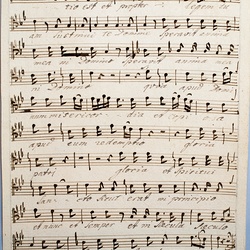 rio est et propter legem tu
am sustinui te Domine speravit anima
mea in Domino speravit anima mea
in Domino quia apud Domi
num misericordia et copiosa
apud eum redemptio gloria
patri gloria et Spiritui
Sancto Sicut erat in principio
et nunc et semper et in Saecula Saeculo